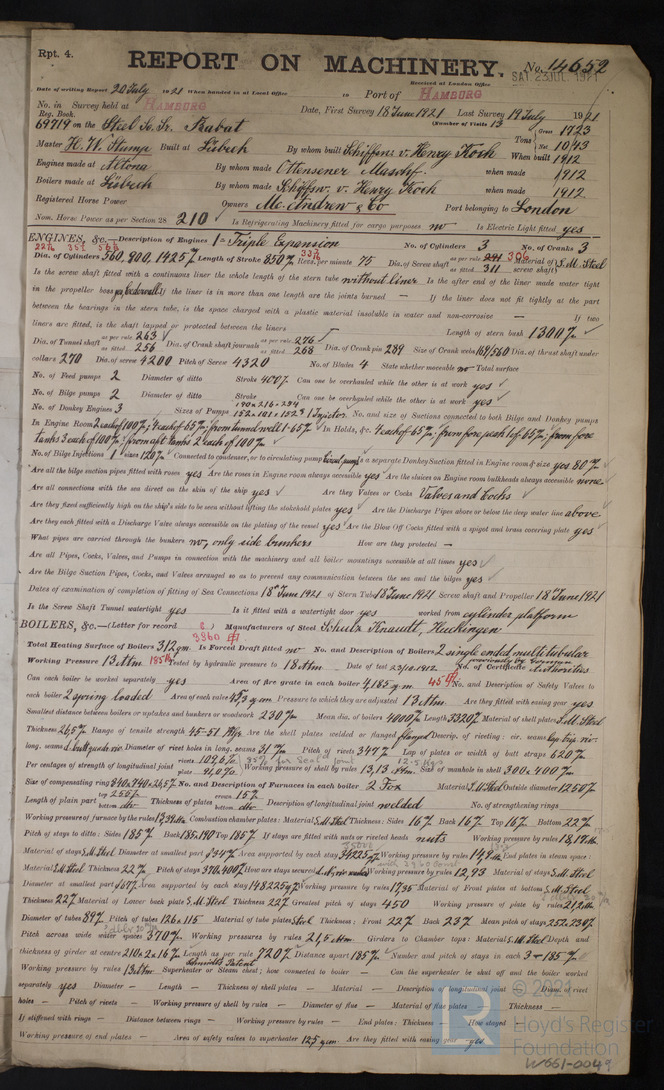 Rpt. 4.
REPORT ON MACHINERY.
No. 14652
SAT. 23 JUL 1921
Received at London Office
Date of writing Report 20 July 1921 When handed in at Local Office
Port of HAMBURG
No. in Survey held at HAMBURG Date, First Survey 18 June 1921 Last Survey 19 July 1921
Reg. Book. (Number of Visits 13
69719 on the Steel Sc. Sr. Rabat
Tons Gross 1723 Net 1043
Master H. W. Stamp Built at Lübeck By whom built Schiffsw. v. Henry Koch When built 1912
Engines made at Altona By whom made Ottensener Maschf. when made 1912
Boilers made at Lübeck By whom made Schiffsw. v. Henry Koch when made 1912.
Registered Horse Power Owners Mc. Andrew & Co Port belonging to London
Nom. Horse Power as per Section 28 210 Is Refrigerating Machinery fitted for cargo purposes no Is Electric Light fitted yes
ENGINES, &c.—Description of Engines Triple Expansion No. of Cylinders 3 No. of Cranks 3
Dia. of Cylinders 560, 900, 1425 Length of Stroke 850 Revs. per minute 75 Dia. of Screw shaft as per rule 306 as fitted 311 Material of screw shaft S. M. Steel
Is the screw shaft fitted with a continuous liner the whole length of the stern tube without liner Is the after end of the liner made water tight
in the propeller boss If the liner is in more than one length are the joints burned — If the liner does not fit tightly at the part
between the bearings in the stern tube, is the space charged with a plastic material insoluble in water and non-corrosive — If two
liners are fitted, is the shaft lapped or protected between the liners Length of stern bush 1300
Dia. of Tunnel shaft as per rule 263 as fitted 256 Dia. of Crank shaft journals as per rule 276 as fitted 268 Dia. of Crank pin 289 Size of Crank webs 169/560 Dia. of thrust shaft under
collars 270 Dia. of screw 4200 Pitch of Screw 4320 No. of Blades 4 State whether moveable no Total surface
No. of Feed pumps 2 Diameter of ditto Stroke 400 Can one be overhauled while the other is at work yes
No. of Bilge pumps 2 Diameter of ditto Stroke Can one be overhauled while the other is at work yes
No. of Donkey Engines 3 Sizes of Pumps 1 Injector No. and size of Suctions connected to both Bilge and Donkey pumps
In Engine Room 2 each of 100, 4 each of 65, from tunnel well 1-65 In Holds, &c. 4 each of 65, from fore peak 1 of 65, from fore
tanks 3 each of 100, from aft tanks 2 each of 100
No. of Bilge Injections 1 sizes 120 Connected to condenser, or to circulating pump Circul. pump Is a separate Donkey Suction fitted in Engine room & size yes 80
Are all the bilge suction pipes fitted with roses yes Are the roses in Engine room always accessible yes Are the sluices on Engine room bulkheads always accessible none
Are all connections with the sea direct on the skin of the ship yes Are they Valves or Cocks Valves and Cocks
Are they fixed sufficiently high on the ship's side to be seen without lifting the stokehold plates yes Are the Discharge Pipes above or below the deep water line above
Are they each fitted with a Discharge Valve always accessible on the plating of the vessel yes Are the Blow Off Cocks fitted with a spigot and brass covering plate yes
What pipes are carried through the bunkers no, only side bunkers How are they protected —
Are all Pipes, Cocks, Valves, and Pumps in connection with the machinery and all boiler mountings accessible at all times yes
Are the Bilge Suction Pipes, Cocks, and Valves arranged so as to prevent any communication between the sea and the bilges yes
Dates of examination of completion of fitting of Sea Connections 18th June 1921 of Stern Tube 18 June 1921 Screw shaft and Propeller 18 June 1921
Is the Screw Shaft Tunnel watertight yes Is it fitted with a watertight door yes worked from cylinder platform
BOILERS, &c.—(Letter for record S) Manufacturers of Steel Schulz Knaudt, Huckingen
3360
Total Heating Surface of Boilers 312 qm Is Forced Draft fitted no No. and Description of Boilers 2 single ended multitubular
Working Pressure 13 Atm 185 lb Tested by hydraulic pressure to 18 Atm Date of test 23/10.1912. No. of Certificate previously by German Authorities
Can each boiler be worked separately yes Area of fire grate in each boiler 4,185 qm 45 No. and Description of Safety Valves to
each boiler 2 spring loaded Area of each valve Pressure to which they are adjusted 13 Atm Are they fitted with easing gear yes
Smallest distance between boilers or uptakes and bunkers or woodwork 230 Mean dia. of boilers 4000 Length 3320 Material of shell plates S.M. Steel
Thickness 26,5 Range of tensile strength 45-51 Are the shell plates welded or flanged flanged Descrip. of riveting: cir. seams lap trip. riv.
long. seams Diameter of rivet holes in long. seams 31 Pitch of rivets 347 Lap of plates or width of butt straps 620
Per centages of strength of longitudinal joint rivets 109,6 plate 91,0 Working pressure of shell by rules 13,13 Atm. Size of manhole in shell 300 x 400
Size of compensating ring No. and Description of Furnaces in each boiler 2 Fox Material S.M. Steel Outside diameter 1250
Length of plain part top bottom Thickness of plates crown 15 bottom Description of longitudinal joint welded No. of strengthening rings
Working pressure of furnace by the rules Combustion chamber plates: Material S.M. Steel Thickness: Sides 16 Back 16 Top 16 Bottom 22
Pitch of stays to ditto: Sides 185 Back 185x190 Top 185 If stays are fitted with nuts or riveted heads nuts Working pressure by rules
Material of stays S.M. Steel Diameter at smallest part Area supported by each stay 34225 Working pressure by rules End plates in steam space:
Material S.M. Steel Thickness 22 Pitch of stays 370x400 How are stays secured Working pressure by rules 12,93 Material of stays S.M. Steel
Diameter at smallest part Area supported by each stay 148225 Working pressure by rules 17,35 Material of Front plates at bottom S.M. Steel
Thickness 22 Material of Lower back plate S.M. Steel Thickness 22 Greatest pitch of stays 450 Working pressure of plate by rules
Diameter of tubes 89 Pitch of tubes 126 x 115 Material of tube plates Steel Thickness: Front 22 Back 23 Mean pitch of stays
Pitch across wide water spaces 370 Working pressures by rules 21,5 Atm. Girders to Chamber tops: Material S.M. Steel Depth and
thickness of girder at centre 210 x 2 x 16 Length as per rule 720 Distance apart 185 Number and pitch of stays in each 3 - 185
Working pressure by rules Superheater or Steam chest; how connected to boiler Schmidt's Patent Can the superheater be shut off and the boiler worked
separately yes Diameter — Length — Thickness of shell plates — Material — Description of longitudinal joint Diam. of rivet
holes — Pitch of rivets — Working pressure of shell by rules — Diameter of flue — Material of flue plates Thickness —
If stiffened with rings — Distance between rings — Working pressure by rules — End plates: Thickness How stayed
Working pressure of end plates — Area of safety valves to superheater Are they fitted with easing gear yes
© 2021
Lloyd's Register
Foundation
W661-0049